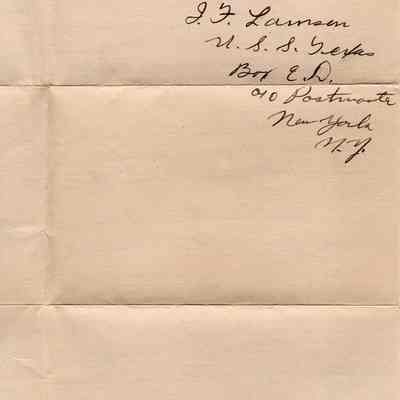 J. F. Lamson
U. S. S. Texas
Box E. D.
c/o Postmaster
New York
N. Y.